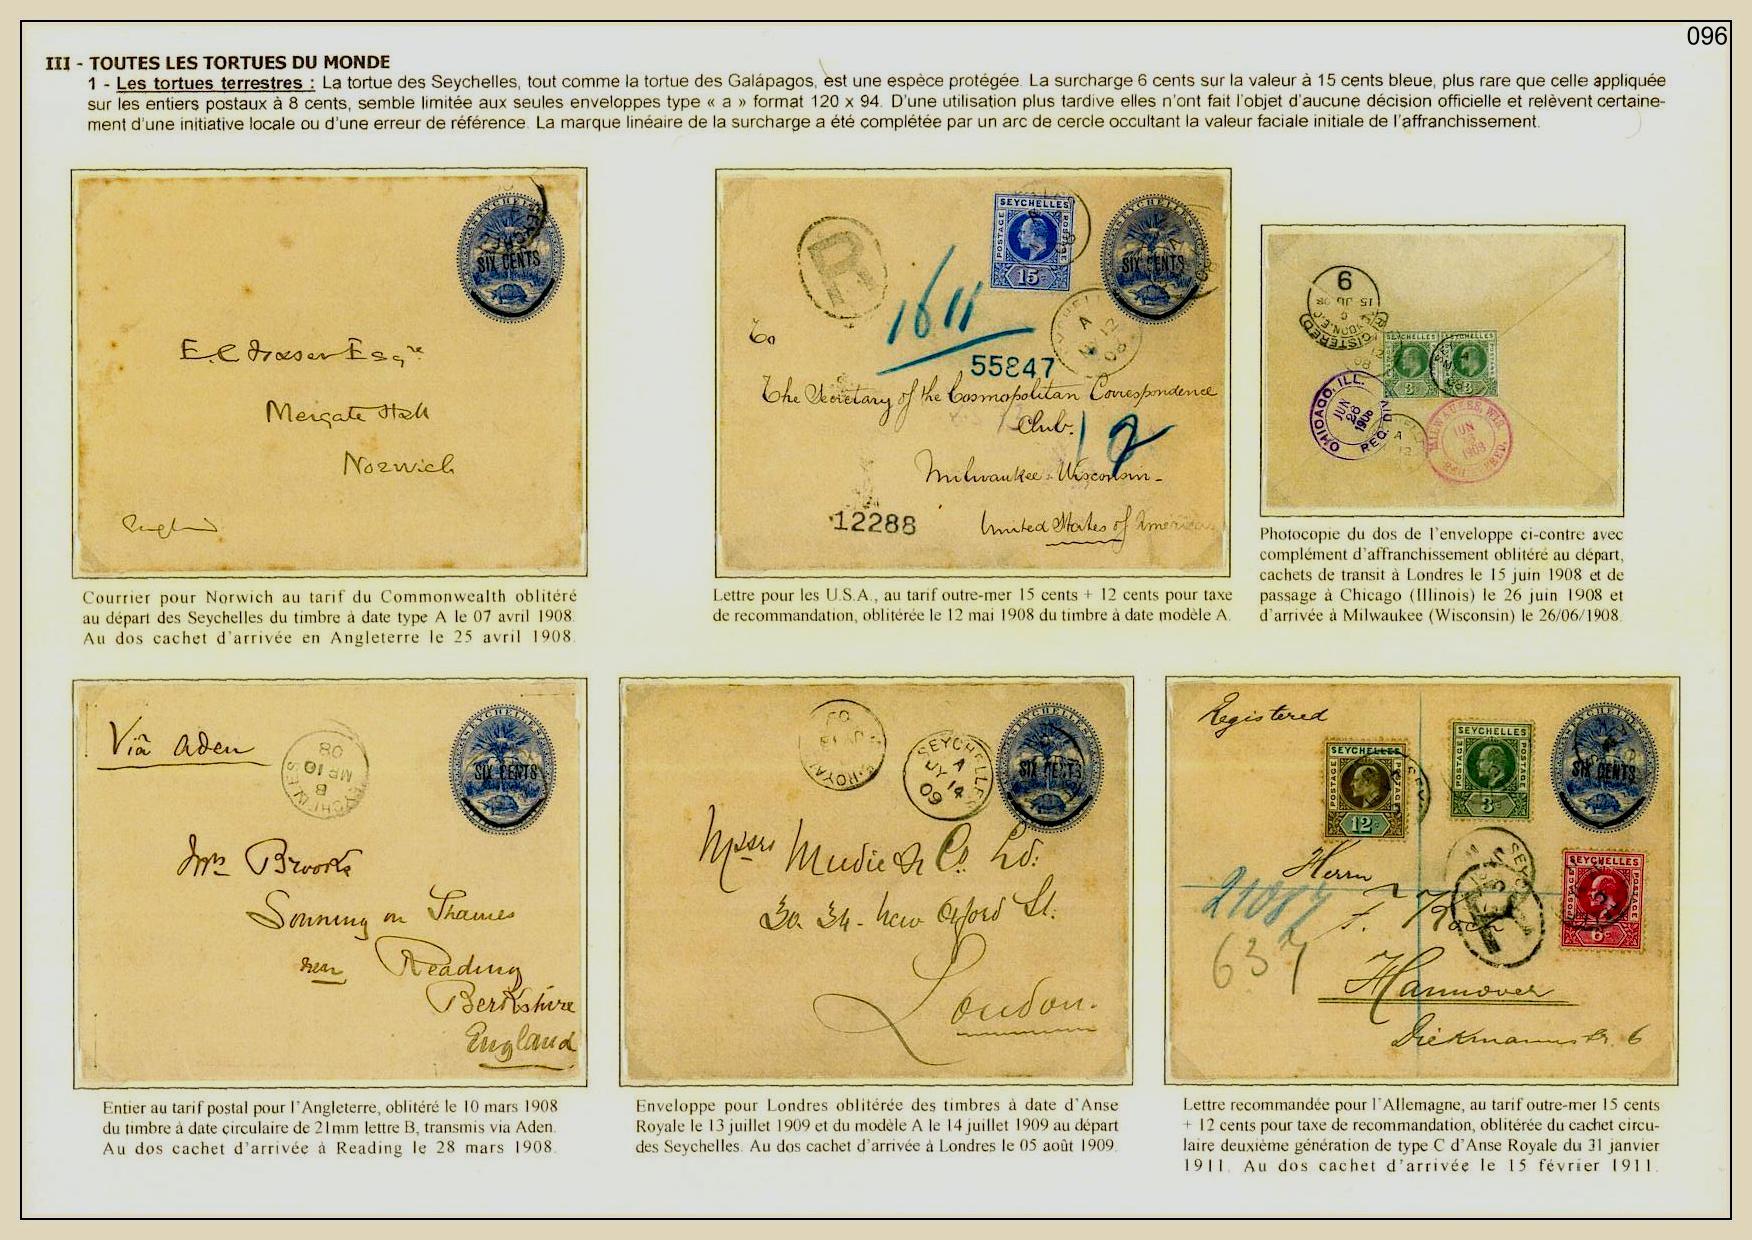 096
III - TOUTES LES TORTUES DU MONDE
1 - Les tortues terrestres : La tortue des Seychelles, tout comme la tortue des Galápagos, est une espèce protégée. La surcharge 6 cents sur la valeur à 15 cents bleue, plus rare que celle appliquée
sur les entiers postaux à 8 cents, semble limitée aux seules enveloppes type « a » format 120 x 94. D'une utilisation plus tardive elles n'ont fait l'objet d'aucune décision officielle et relèvent certaine-
ment d'une initiative locale ou d'une erreur de référence. La marque linéaire de la surcharge a été complétée par un arc de cercle occultant la valeur faciale initiale de l'affranchissement.
SEYCHELLES
SIX CENTS
Mergate Hall
Norwich
England
Courrier pour Norwich au tarif du Commonwealth oblitéré
au départ des Seychelles du timbre à date type A le 07 avril 1908.
Au dos cachet d'arrivée en Angleterre le 25 avril 1908.
R
SEYCHELLES
POSTAGE
POSTAGE
15c
SEYCHELLES
SIX CENTS
A
MY 12
08
1611
To
55847
The Secretary of the Cosmopolitan Correspondence
Club.
12
Milwaukee - Wisconsin -
12288
United States of America
Lettre pour les U.S.A., au tarif outre-mer 15 cents + 12 cents pour taxe
de recommandation, oblitérée le 12 mai 1908 du timbre à date modèle A.
REGISTERED
LONDON. E.C.
15 JU 08
6
SEYCHELLES
3c
SEYCHELLES
3c
CHICAGO, ILL.
JUN
26
1908
REG. DIV.
MILWAUKEE, WIS.
JUN
1908
Photocopie du dos de l'enveloppe ci-contre avec
complément d'affranchissement oblitéré au départ,
cachets de transit à Londres le 15 juin 1908 et de
passage à Chicago (Illinois) le 26 juin 1908 et
d'arrivée à Milwaukee (Wisconsin) le 26/06/1908.
Viâ Aden
SEYCHELLES
B
MR 10
08
SEYCHELLES
SIX CENTS
Mrs Brooks
Sonning on Thames
near Reading
Berkshire
England
Entier au tarif postal pour l'Angleterre, oblitéré le 10 mars 1908
du timbre à date circulaire de 21mm lettre B, transmis via Aden.
Au dos cachet d'arrivée à Reading le 28 mars 1908.
SEYCHELLES
A
JY 14
09
SEYCHELLES
SIX CENTS
Messrs Mudie & Co. Ld:
30. 34 - New Oxford St.
London.
Enveloppe pour Londres oblitérée des timbres à date d'Anse
Royale le 13 juillet 1909 et du modèle A le 14 juillet 1909 au départ
des Seychelles. Au dos cachet d'arrivée à Londres le 05 août 1909.
Registered
SEYCHELLES
POSTAGE
POSTAGE
12c
SEYCHELLES
POSTAGE
POSTAGE
3c
SIX CENTS
SEYCHELLES
POSTAGE
POSTAGE
6c
Herrn
21087
637
R
Hannover
Diekmannstr. 6
Lettre recommandée pour l'Allemagne, au tarif outre-mer 15 cents
+ 12 cents pour taxe de recommandation, oblitérée du cachet circu-
laire deuxième génération de type C d'Anse Royale du 31 janvier
1911. Au dos cachet d'arrivée le 15 février 1911.